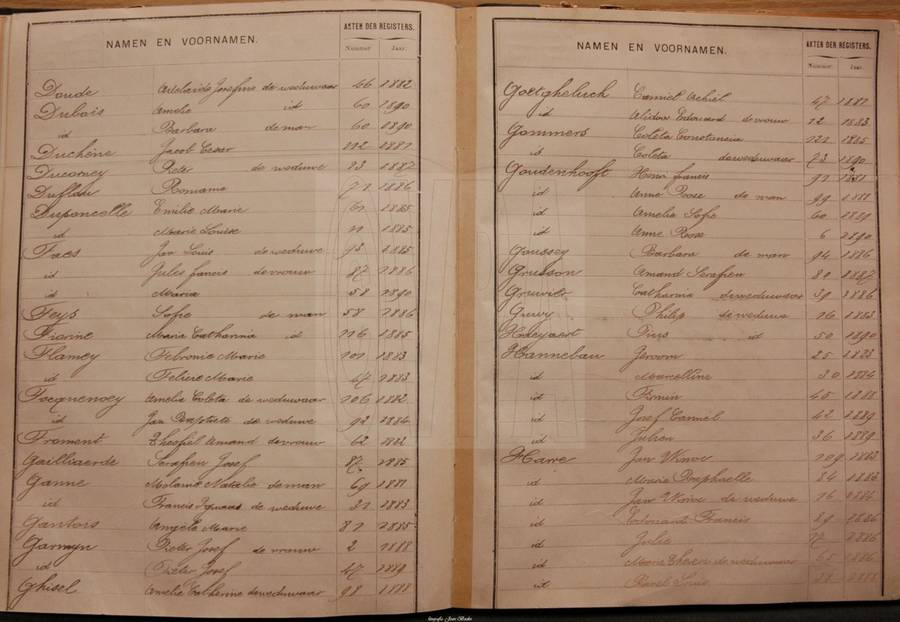 NAMEN EN VOORNAMEN. AKTEN DER REGISTERS.
Nummer Jaar.
Doude Adelaide Josefine de weduwaar 66 1882
Dubois Amelie id 60 1890
id Barbara de man 60 1890
Duchêne Jacob Cesar 112 1881
Ducorney Pieter de weduwe 23 1887
Duflau Romanie 71 1886
Duponcelle Emilie Marie 61 1885
id Marie Louise 11 1885
Faes Jan Louis de weduwe 93 1885
id Jules francis de vrouw 87 1886
id Maria 58 1890
Feys Sofie de man 58 1886
Fionne Marie Catharina id 116 1885
Flamey Febronie Marie 101 1883
id Felicie Marie 47 1883
Focquenoey Amelia Coleta de weduwaar 106 1882
id Jan Baptiste de weduwe 92 1884
Froment Theofiel Amand de vrouw 62
Gailliaerde Serafien Josef 87 1885
Ganne Melanie Natalie de man 69 1881
id Francis Ignaas de weduwe 21 1883
Gantois Angela Marie 81 1885
Garmyn Pieter Josef de vrouw 2 1888
id Pieter Josef 47 1889
Ghisel Amelie Catherine de weduwaar 98 1888
NAMEN EN VOORNAMEN. AKTEN DER REGISTERS.
Nummer Jaar.
Goetgheluck Camiel Achiel 47 1881
id Edouard de vrouw 12 1883
Gommers Coleta Constancia 121 1885
id Coleta de weduwaar 73 1890
Goudenhooft Henri francis 91 1881
id Anne Rose de man 99 1888
id Amelia Sofie 60 1889
id Anne Rose 6 1890
Goussey Barbara de man 94 1886
Grusson Amand Serafien 80 1887
Gruwilt Catharina de weduwaar 39 1886
Gruwy Philip de weduwe 16 1883
Haeyaert Pius id 50 1890
Hannebau Jeroom 25 1883
id Marcelline 30 1884
id Firmin 45 1888
id Josef Camiel 42 1889
id Julien 36 1889
Hawe Jan 109 1883
id Marie Raphaelle 84 1883
id Jan de weduwe 16 1884
id Edouard Francis 89 1886
id Julie 1886
id Marie Theres de weduwaar 65 1886
id Karel Louis 28 1888